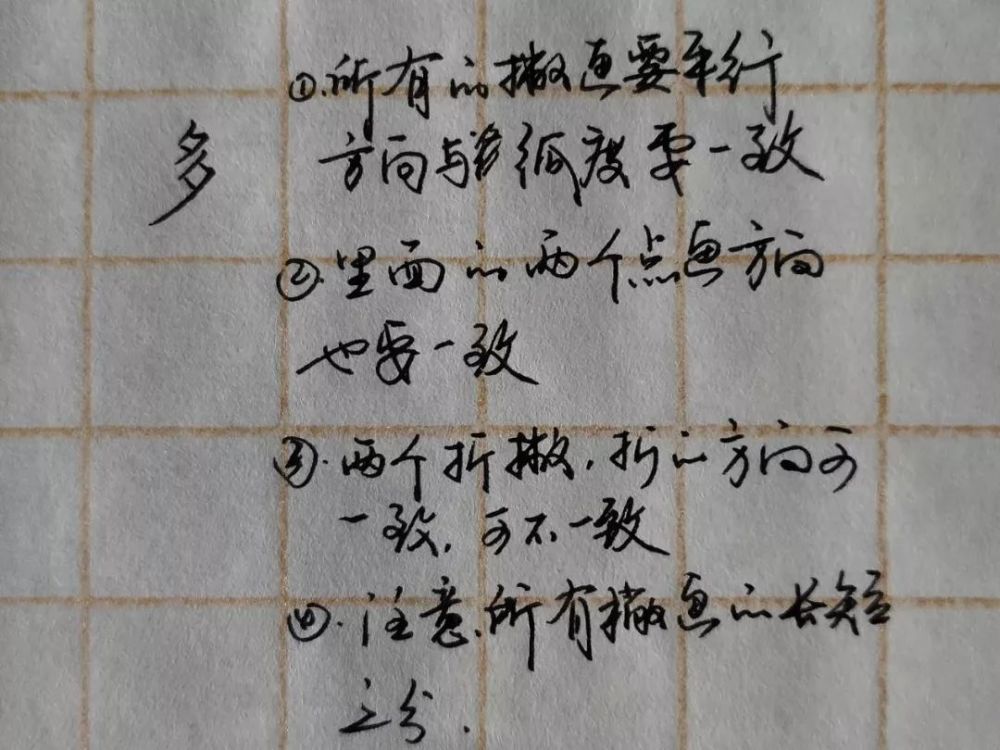 多
①.所有的撇画要平行
方向与弧度要一致
②.里面的两个点画方向
也要一致
③.两个折撇,折的方向可
一致,可不一致
④.注意,所有撇画的长短
之分.